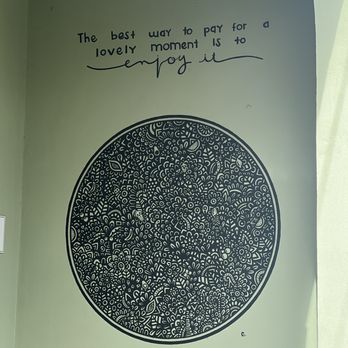 The best way to pay for a
lovely moment is to
enjoy it
c.